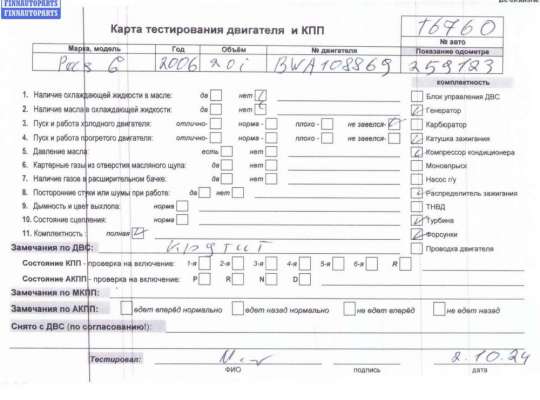 FINNAUTOPARTS
FINNAUTOPARTS
Карта тестирования двигателя и КПП
16760
№ авто
Марка, модель Год Объём № двигателя Показание одометре
2006 2.0i BWA108869 259123
комплектность
1. Наличие охлаждающей жидкости в масле: да нет
Блок управления ДВС
2. Наличие масла в охлаждающей жидкости: да нет
Генератор
3. Пуск и работа холодного двигателя: отлично- норма - плохо - не завелся-
Карбюратор
4. Пуск и работа прогретого двигателя: отлично- норма - плохо - не завелся-
Катушка зажигания
5. Давление масла: есть нет
Компрессор кондиционера
6. Картерные газы из отверстия масляного щупа: да нет
Моновпрыск
7. Наличие газов в расширительном бачке: да нет
Насос г/у
8. Посторонние стуки или шумы при работе: да нет
Распределитель зажигания
9. Дымность и цвет выхлопа: норма
ТНВД
10. Состояние сцепления: норма
Турбина
11. Комплектность : полная
Форсунки
Замечания по ДВС: крутит
Проводка двигателя
Состояние КПП - проверка на включение: 1-я 2-я 3-я 4-я 5-я 6-я R
Состояние АКПП - проверка на включение: P R N D
Замечания по МКПП:
Замечания по АКПП: едет вперёд нормально едет назад нормально не едет вперёд не едет назад
Снято с ДВС (по согласованию!):
Тестировал: 2.10.24
ФИО подпись дата